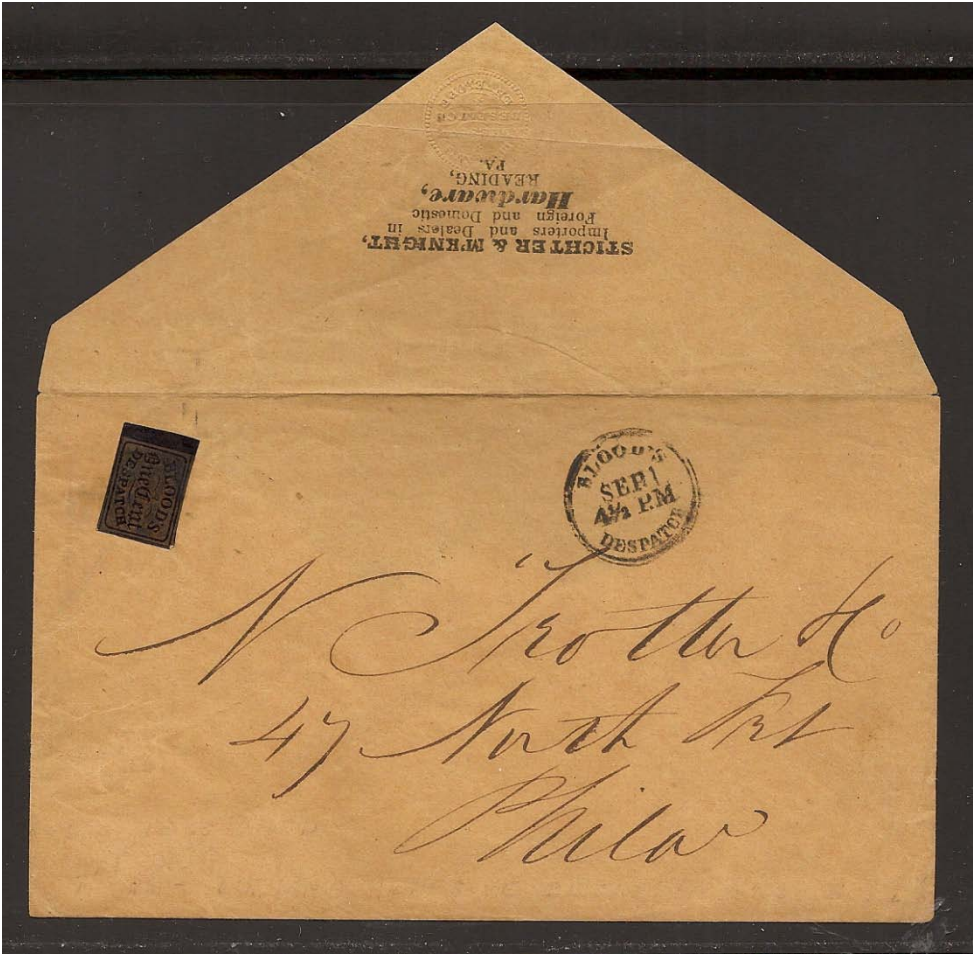 STICHTER & M'KNIGHT,
Importers and Dealers in
Foreign and Domestic
Hardware,
READING,
PA.
BLOOD'S
One Cent
DESPATCH
BLOOD'S
SEP 1
4½ P.M
DESPATCH
N Trotter & Co
47 North Frt
Phila